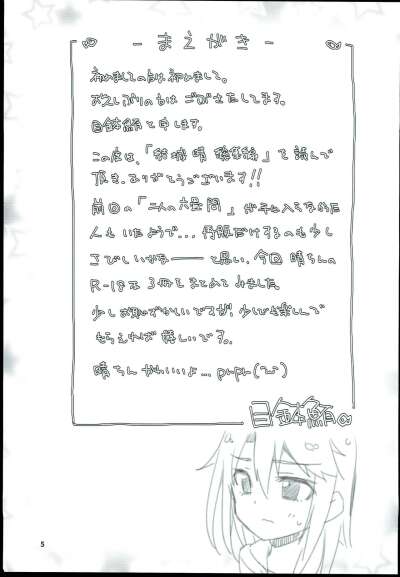 - まえがき -
初めましての方は初めまして。
お久しぶりの方は ごぶさたしてます。
と申します。
この度は、「結城晴 総集編」を読んで
頂き、ありがとうございます!!
前回の「二人の大き目」が手に入らなかった
人もいたようで... 再販だけするのも少し
さびしいかなーーと思い、今回 晴ちんの
R-18本 3冊をまとめてみました。
少しお恥ずかしいですが、少しでも楽しんで
もらえれば 嬉しいです。
晴ちん かわいいよ... prpr
5